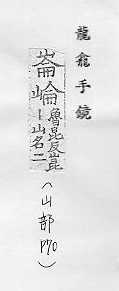 龍龕手鏡
崙崘魯昆反崑
丨山名二
(山部 P70)